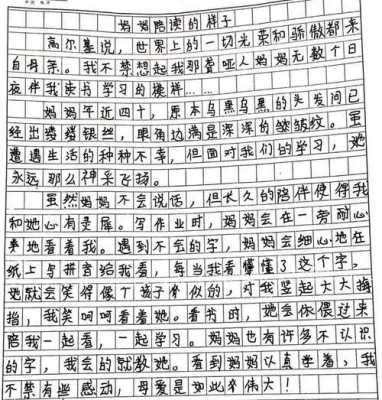 妈妈陪读的样子
高尔基说，世界上的一切光荣和骄傲都来
自母亲。我不禁想起我那聋哑人妈妈无数个日
夜伴我读书学习的模样……
妈妈年近四十，原本乌黑乌黑的头发间已
经出缕缕银丝，眼角边满是深深的皱皱纹。虽
遭遇生活的种种不幸，但面对我们的学习，她
永远那么神采飞扬。
虽然妈妈不会说话，但长久的陪伴使得我
和她心有灵犀。写作业时，妈妈会在一旁耐心
地看着我。遇到不会的字，妈妈会细心地在
纸上写拼音给我看，每当我看懂懂了这个字，
她就会笑得像个孩子似的，对我竖起大大拇
指，我笑呵呵看着她。看书时，她会偎过来
陪我一起看，一起学习。妈妈也有许多不认识
的字，我会的就教她。看到妈妈认真学着，我
不禁有些感动，母爱是如此伟大！